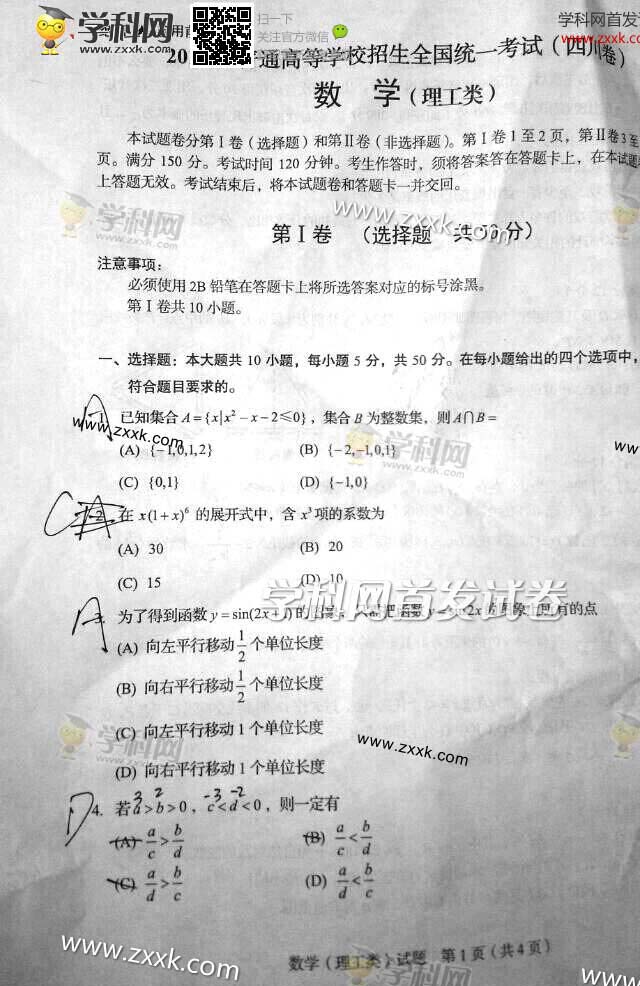 学科网
www.zxxk.com
扫一下
关注官方微信
学科网首发试卷
www.zxxk.com
20 普通高等学校招生全国统一考试(四川卷)
数 学(理工类)
本试题卷分第Ⅰ卷(选择题)和第Ⅱ卷(非选择题)。第Ⅰ卷1至2页,第Ⅱ卷3至
页。满分150分。考试时间120分钟。考生作答时,须将答案答在答题卡上,在本试题
上答题无效。考试结束后,将本试题卷和答题卡一并交回。
学科网
www.zxxk.com
www.zxxk.com
第Ⅰ卷 (选择题 共50分)
注意事项:
必须使用2B铅笔在答题卡上将所选答案对应的标号涂黑。
第Ⅰ卷共10小题。
一、选择题:本大题共10小题,每小题5分,共50分。在每小题给出的四个选项中,
符合题目要求的。
A 1. 已知集合A={x|x²−x−2≤0},集合B为整数集,则A∩B=
www.zxxk.com
(A) {−1,0,1,2} (B) {−2,−1,0,1}
学科网
www.zxxk.com
(C) {0,1} (D) {−1,0}
C 2. 在x(1+x)⁶的展开式中,含x³项的系数为
(A) 30 (B) 20
(C) 15 (D) 10
学科网首发试卷
A 为了得到函数y=sin(2x+1)的图象,只需把函数y=sin2x的图象上所有的点
(A) 向左平行移动1/2个单位长度
(B) 向右平行移动1/2个单位长度
(C) 向左平行移动1个单位长度
学科网
www.zxxk.com
www.zxxk.com
(D) 向右平行移动1个单位长度
3 2 -3 -2
D 4. 若a>b>0,c<d<0,则一定有
(A) a/c>b/d (B) a/c<b/d
(C) a/d>b/c (D) a/d<b/c
学科网
www.zxxk.com
www.zxxk.com
数学(理工类)试题 第1页(共4页)
www.zxxk.com